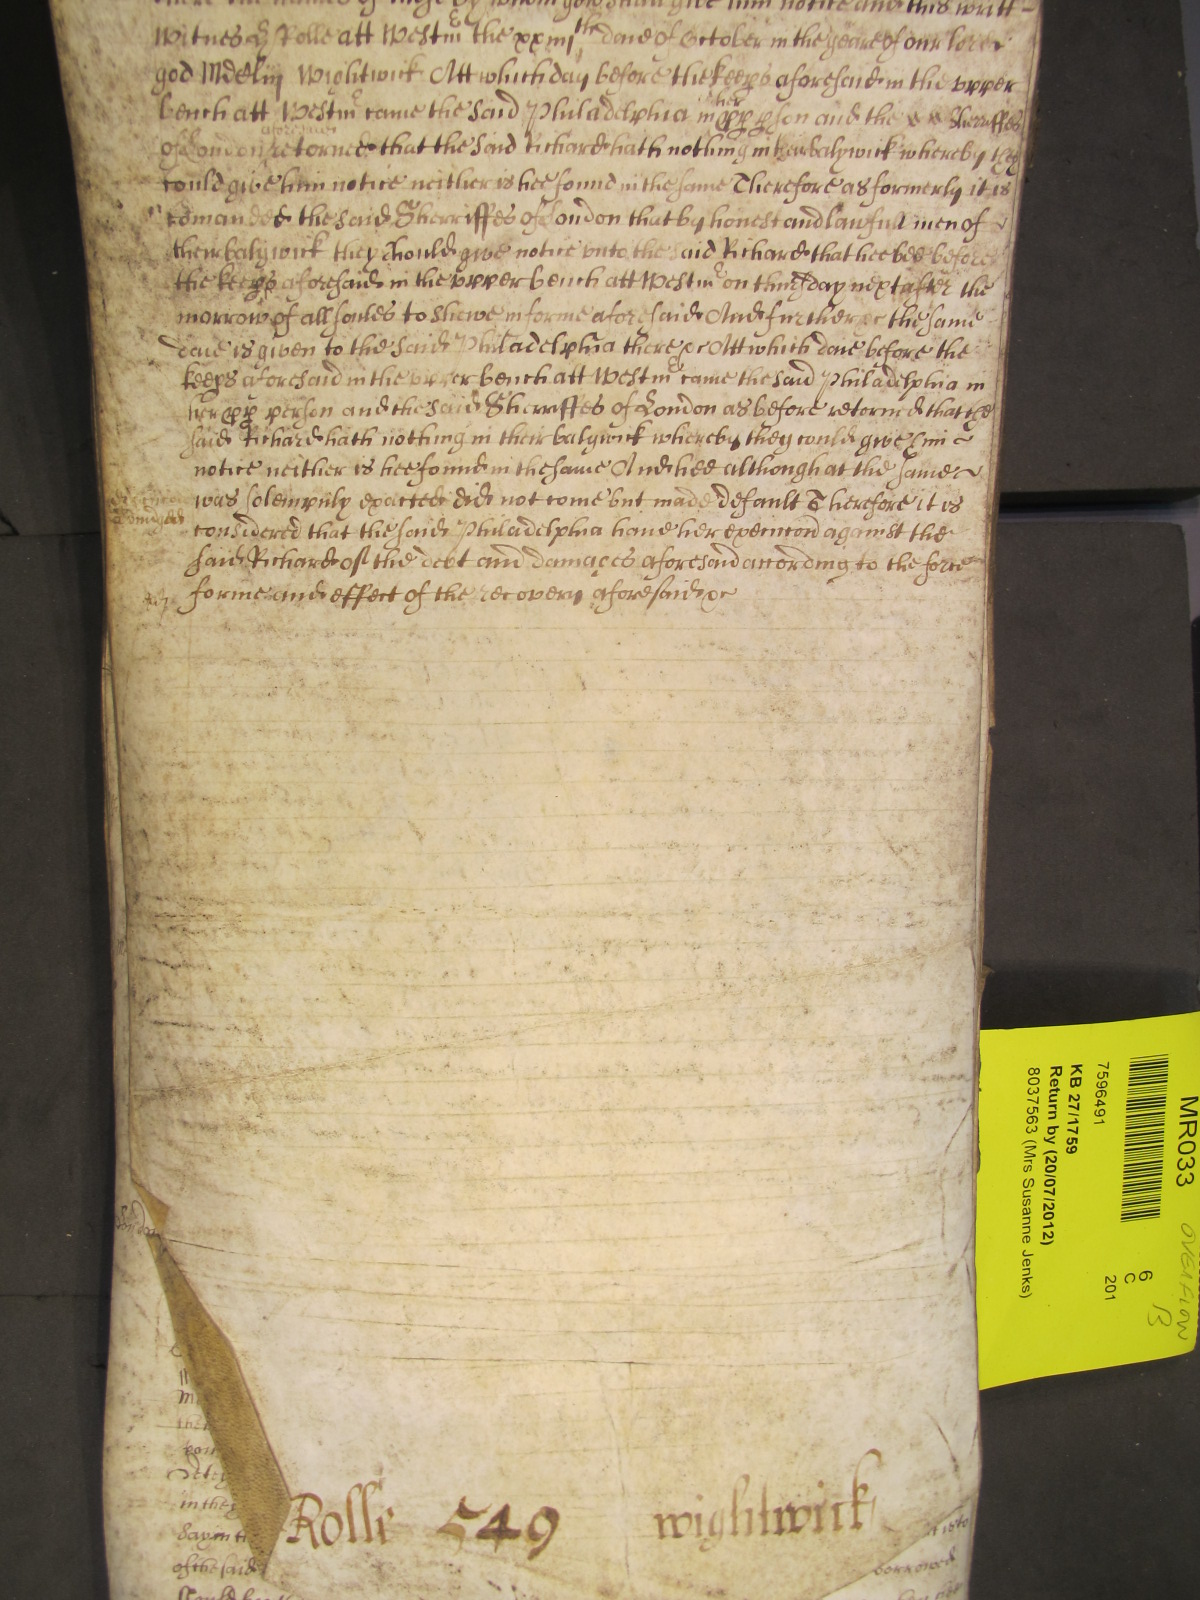 there the names of those by whom you shall give him notice and this writt
Witnes H Rolle att Westm the xxiiijth daie of October in the yeare of our lord
god MDCliij Wightwick Att which day before the keeps aforesaid in the upper
bench att Westm came the said Philadelphia in her pp pson and the Sherriffes
of London aforesaid retorned that the said Richard hath nothing in their balywick whereby they
could give him notice neither is hee found in the same Therefore as formerly it is
comanded the said Sherriffes of London that by honest and lawfull men of
their balywick they should give notice unto the said Richard that hee bee before
the keeps aforesaid in the upper bench att Westm on thursday next after the
morrow of all soules to shewe in forme aforesaid And further &c the same
daie is given to the said Philadelphia there &c Att which daie before the
keeps aforesaid in the upper bench att Westm came the said Philadelphia in
her pp person and the said Sherriffes of London as before retorned that the
said Richard hath nothing in their balywick whereby they could give him
notice neither is hee found in the same And hee although at the same
was solempnly exacted did not come but made default Therefore it is
considered that the said Philadelphia have her execucon against the
said Richard of the debt and damages aforesaid according to the force
forme and effect of the recovery aforesaid &c
London
in the
day in t
of the said
borrowed
Rolle 549 wightwick
MR033
7596491
KB 27/1759
Return by (20/07/2012)
8037563 (Mrs Susanne Jenks)
6
C
201
OVERFLOW
B